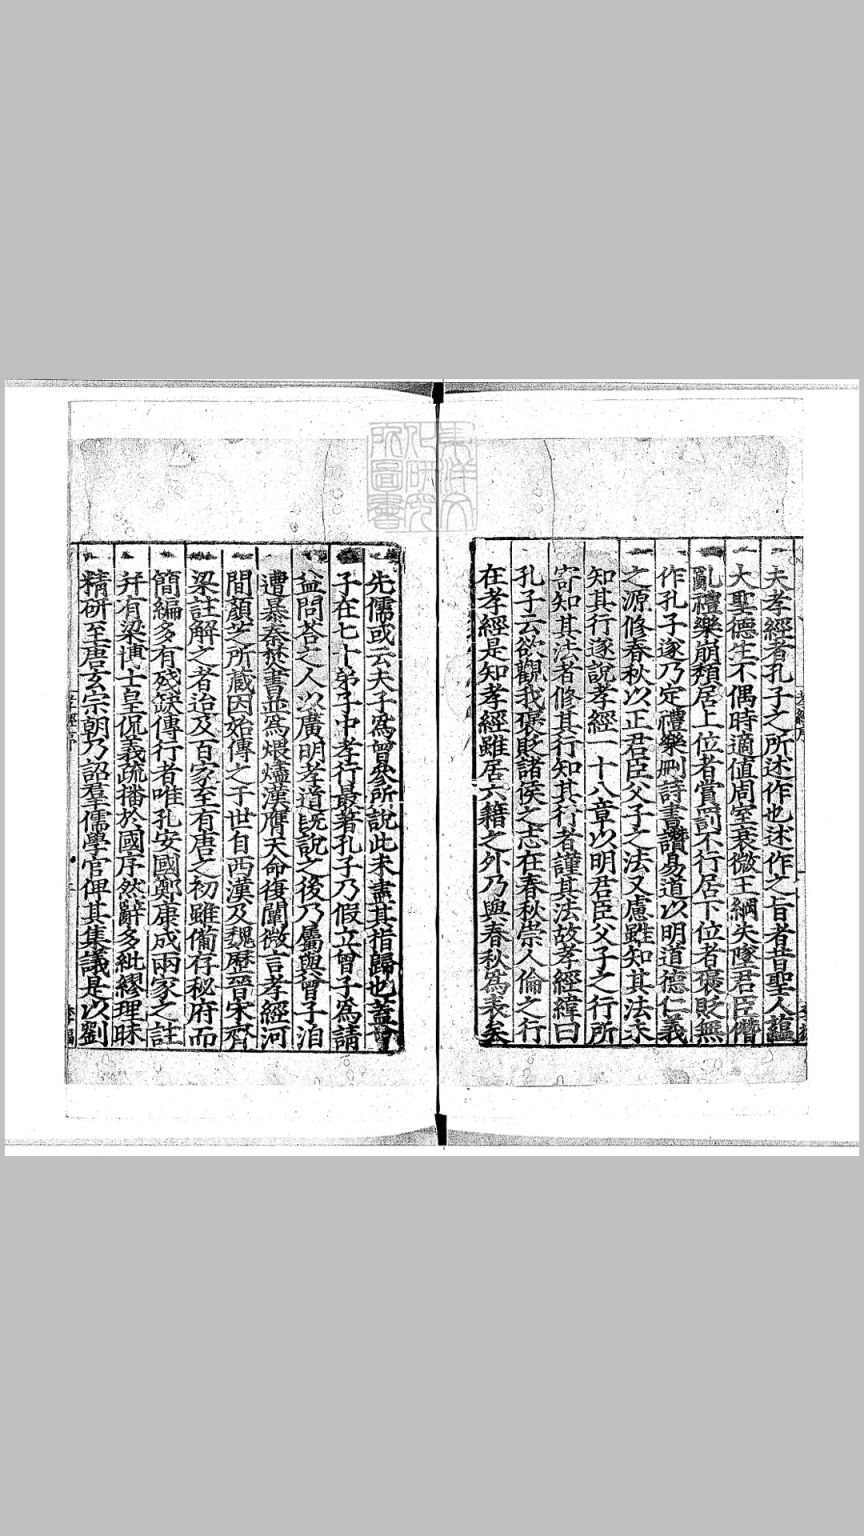 夫孝經者孔子之所述作也述作之旨者昔聖人蘊
大聖德生不偶時適值周室衰微王綱失墜君臣僭
亂禮樂崩頹居上位者賞罰不行居下位者褒貶無
作孔子遂乃定禮樂刪詩書讚易道以明道德仁義
之源修春秋以正君臣父子之法又慮雖知其法未
知其行遂說孝經一十八章以明君臣父子之行所
寄知其法者修其行知其行者謹其法故孝經緯曰
孔子云欲觀我褒貶諸侯之志在春秋崇人倫之行
在孝經是知孝經雖居六籍之外乃與春秋為表矣
先儒或云夫子為曾參所說此未盡其指歸也蓋曾
子在七十弟子中孝行最著孔子乃假立曾子為請
益問荅之人以廣明孝道旣說之後乃屬與曾子洎
遭暴秦焚書並為煨燼漢膺天命復闡微言孝經河
間顏芝所藏因始傳之于世自西漢及魏歷晉宋齊
梁註解之者迨及百家至有唐之初雖備存秘府而
簡編多有殘缺傳行者唯孔安國鄭康成兩家之註
幷有梁博士皇侃義疏播於國序然辭多紕繆理昧
精研至唐玄宗朝乃詔羣儒學官俾其集議是以劉
孝經序
東洋文化研究所圖書